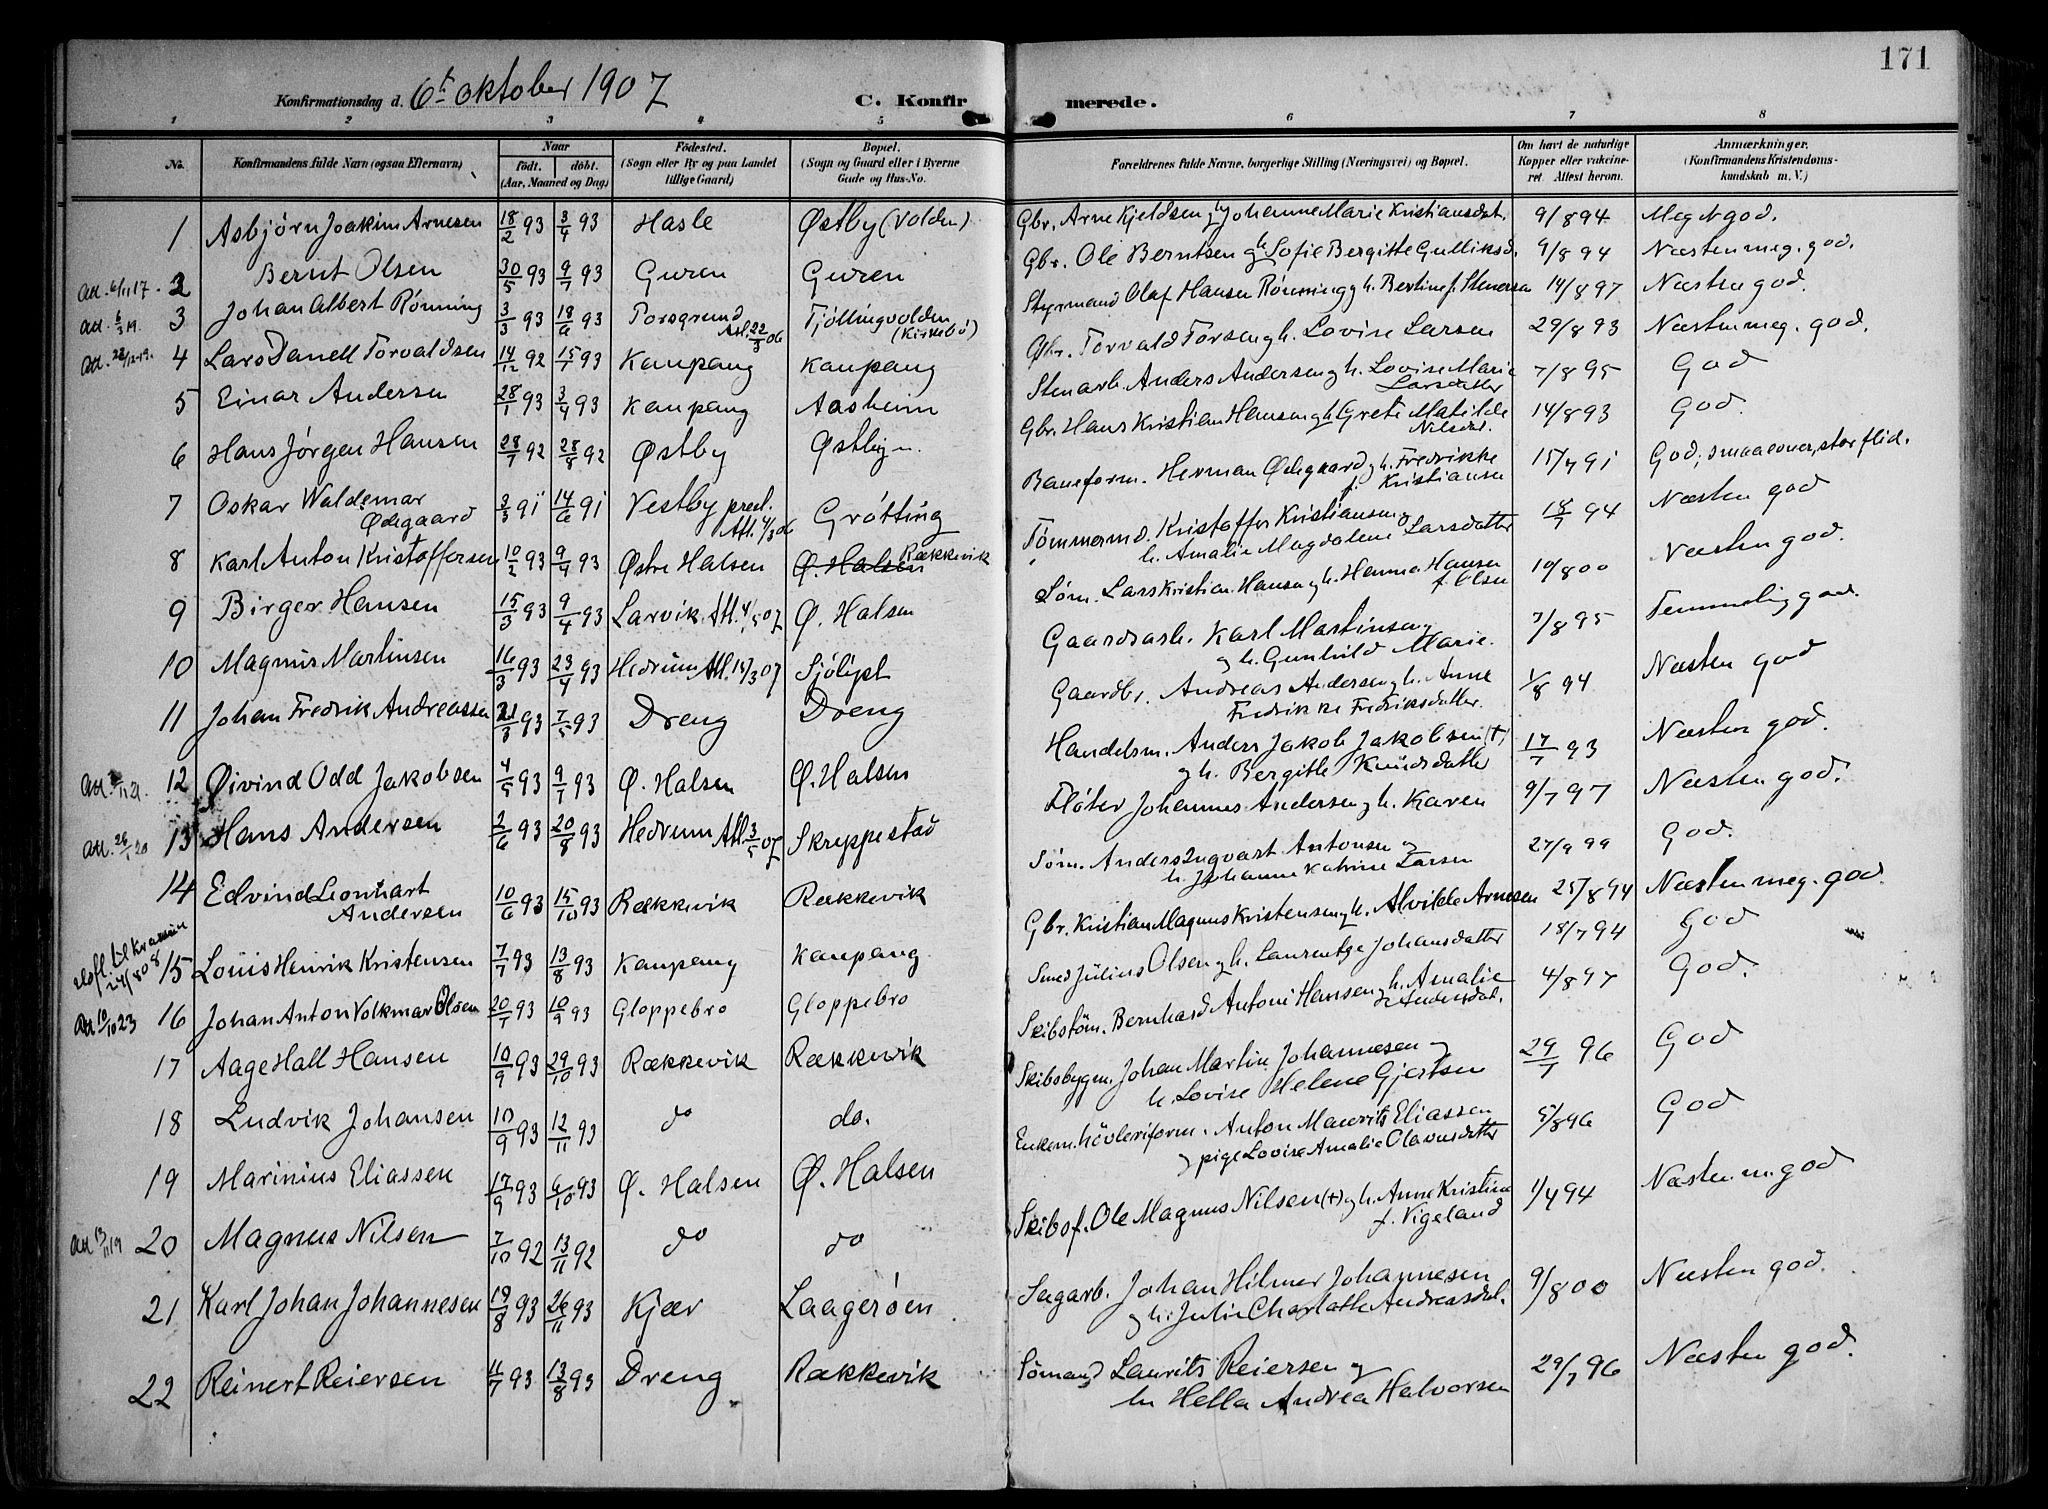 171
Konfirmationsdag d. 6te oktober 1907 C. Konfirmerede.
1 2 3 4 5 6 7 8
No. Konfirmandens fulde Navn (ogsaa Efternavn) Naar født. døbt. (Aar, Maaned og Dag) Fødested. (Sogn eller By og paa Landet tillige Gaard) Bopæl. (Sogn og Gaard eller i Byerne Gade og Hus-No. Forældrenes fulde Navne, borgerlige Stilling (Næringsvei) og Bopæl. Om havt de naturlige Kopper eller vakcineret. Attest herom. Anmærkninger. (Konfirmandens Kristendomskundskab m. V.)
1 Asbjørn Joakim Arnesen 18/2 93 3/4 93 Hasle Østby (Volden) Gbr. Arne Kjeldsen og h. Johanne Marie Kristiansdat. 9/8 94 Meget god.
Att. 6/11 17. 2 Bernt Olsen 30/5 93 9/7 93 Guren Guren Gbr. Ole Berntsen og h. Sofie Bergitte Gulliksd. 9/8 94 Næsten meg. god.
Att. 6/3 19. 3 Johan Albert Rønning 3/3 93 18/6 93 Porsgrund Att. 22/3 06 Tjøllingvolden (Kirkebø) Styrmand Olaf Hansen Rønning og h. Bertine f. Stenersen 14/8 97 Næsten god.
Att. 22/12 19. 4 Lars Danell Torvaldsen 14/12 92 15/1 93 Kaupang Kaupang Gbr. Torvald Torsen og h. Lovise Larsen 29/8 93 Næsten meg. god.
5 Einar Andersen 28/1 93 3/4 93 Kaupang Aasheim Stenarb. Anders Andersen og h. Lovise Marie Larsdatter 7/8 95 God
6 Hans Jørgen Hansen 28/7 92 28/8 92 Østby Østby Gbr. Hans Kristian Hansen og h. Grete Matilde Nilsdat. 14/8 93 God.
7 Oskar Waldemar Ødegaard 3/3 91 14/6 91 Vestby præst. Att. 4/3 06 Grøtting Baneform. Herman Ødegaard og h. Fredrikke f. Kristiansen 15/7 91 God, smaa evner, stor flid.
8 Karl Anton Kristoffersen 10/2 93 9/4 93 Østre Halsen Ø. Halsen Rækkevik Tømmermd. Kristoffer Kristiansen og h. Amalie Magdalene Larsdatter 18/7 94 Næsten god
9 Birger Hansen 15/3 93 9/4 93 Larvik Att. 4/5 07 Ø. Halsen Søm. Lars Kristian Hansen og h. Hanna Hansen f. Olsen 10/8 00 Næsten god.
10 Magnus Martinsen 16/3 93 23/4 93 Hedrum Att. 15/3 07 Sjølyst Gaardsarb. Karl Martinsen og h. Gunhild Marie. 7/8 95 Temmelig god.
11 Johan Fredrik Andreassen 21/3 93 7/5 93 Dreng Dreng Gaardbr. Andreas Andersen og h. Anne Fredrikke Fredriksdatter. 1/8 94 Næsten god
Att. 12 Øivind Odd Jakobsen 4/5 93 9/7 93 Ø. Halsen Ø. Halsen Handelsm. Anders Jakob Jakobsen (†) og h. Bergitte Knudsdatter 17/7 93 Næsten god.
Att. 26/1 20 13 Hans Andersen 2/6 93 20/8 93 Hedrum Att. 3/5 07 Skreppestad Fløter Johannes Andersen og h. Karen 9/7 97 Næsten god.
14 Edvind Leonhart Andersen 10/6 93 15/10 93 Rækkevik Rækkevik Søm. Anders Ingvart Antonsen og h. Johanne Katrine Larsen 27/9 99 God.
24/8 08 15 Louis Henrik Kristensen 7/7 93 13/8 93 Kaupang Kaupang Gbr. Kristian Magnus Kristensen og h. Alvilde Arnesen 25/8 94 Næsten meg. god.
Att 10/10 23 16 Johan Anton Volkmar Olsen 20/7 93 10/9 93 Gloppebro Gloppebro Smed Julius Olsen og h. Laurentze Johansdatter 18/7 94 God
17 Aage Hall Hansen 10/9 93 29/10 93 Rækkevik Rækkevik Skibstøm. Bernhard Antoni Hansen og h. Amalie Andersdat. 4/8 97 God.
18 Ludvik Johansen 10/9 93 12/11 93 do do. Skibsbygm. Johan Martin Johannesen og h. Lovise Helene Gjertsen 29/7 96 God
19 Marinius Eliassen 17/9 93 6/10 93 Ø. Halsen Ø. Halsen Enkem. høvleriform. Anton Maurits Eliassen og pige Lovise Amalie Olavusdatter 5/8 96 God
Att 13/11 19 20 Magnus Nilsen 7/10 92 13/11 92 do do Skibsf. Ole Magnus Nilsen (†) og h. Anne Kristine f. Vigeland 1/7 94 Næsten m. god
21 Karl Johan Johannesen 19/8 93 26/11 93 Kjær Laagerøen Sagarb. Johan Hilmer Johannesen og h. Julie Charlotte Andreasdat. 9/8 00 Næsten god.
22 Reinert Reiersen 11/7 93 13/8 93 Dreng Rækkevik Sømand Laurits Reiersen og h. Hella Andrea Halvorsen 29/7 96 Næsten god.